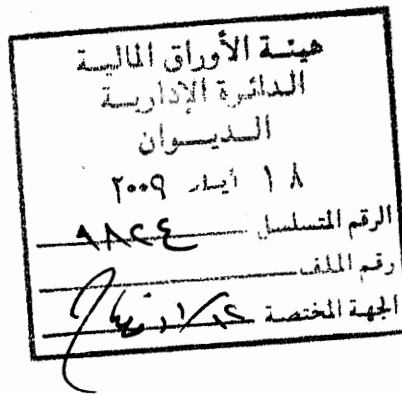 هيئة الأوراق المالية
الدائرة الإدارية
الديوان
١٨ أيار ٢٠٠٩
الرقم المتسلسل ٩٨٢٤
رقم الملف
الجهة المختصة